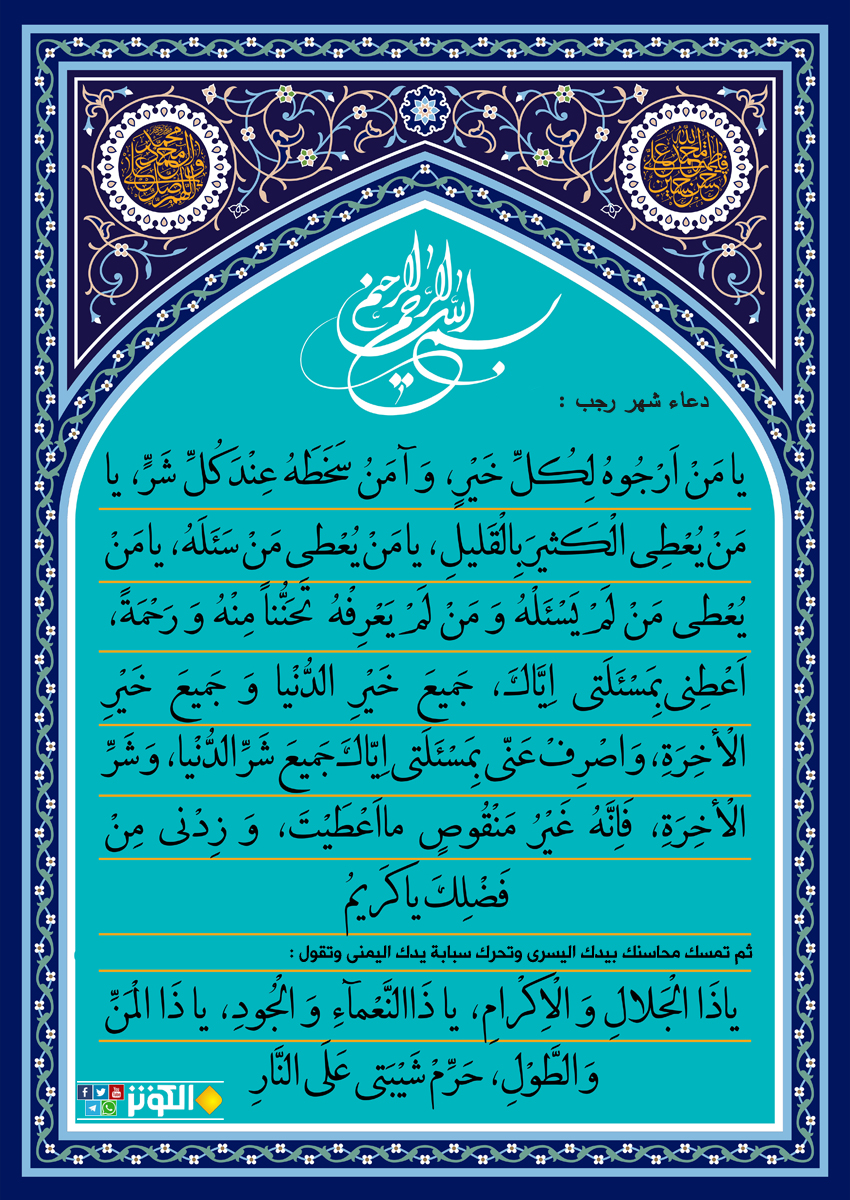 بسم الله الرحمن الرحیم
دعاء شهر رجب :
يا مَنْ اَرْجُوهُ لِكُلِّ خَيْرٍ، وَ آمَنُ سَخَطَهُ عِنْدَ كُلِّ شَرٍّ، يا
مَنْ يُعْطِى الْكَثيرَ بِالْقَليلِ، يا مَنْ يُعْطى مَنْ سَئَلَهُ، يا مَنْ
يُعْطى مَنْ لَمْ يَسْئَلْهُ وَ مَنْ لَمْ يَعْرِفْهُ تَحَنُّناً مِنْهُ وَ رَحْمَةً،
اَعْطِنى بِمَسْئَلَتى اِيَّاكَ، جَميعَ خَيْرِ الدُّنْيا وَ جَميعَ خَيْرِ
الْأخِرَةِ، وَ اصْرِفْ عَنّى بِمَسْئَلَتى اِيّاكَ جَميعَ شَرِّ الدُّنْيا، وَ شَرِّ
الْأخِرَةِ، فَاِنَّهُ غَيْرُ مَنْقُوصٍ ما اَعْطَيْتَ، وَ زِدْنى مِنْ
فَضْلِكَ يا كَريمُ
ثم تمسك محاسنك بيدك اليسرى وتحرك سبابة يدك اليمنى وتقول :
ياذَا الْجَلالِ وَ الْاِكْرامِ، يا ذَا النَّعْمآءِ وَ الْجُودِ، يا ذَا الْمَنِّ
وَ الطَّوْلِ، حَرِّمْ شَيْبَتى عَلَى النَّارِ
الكوثر